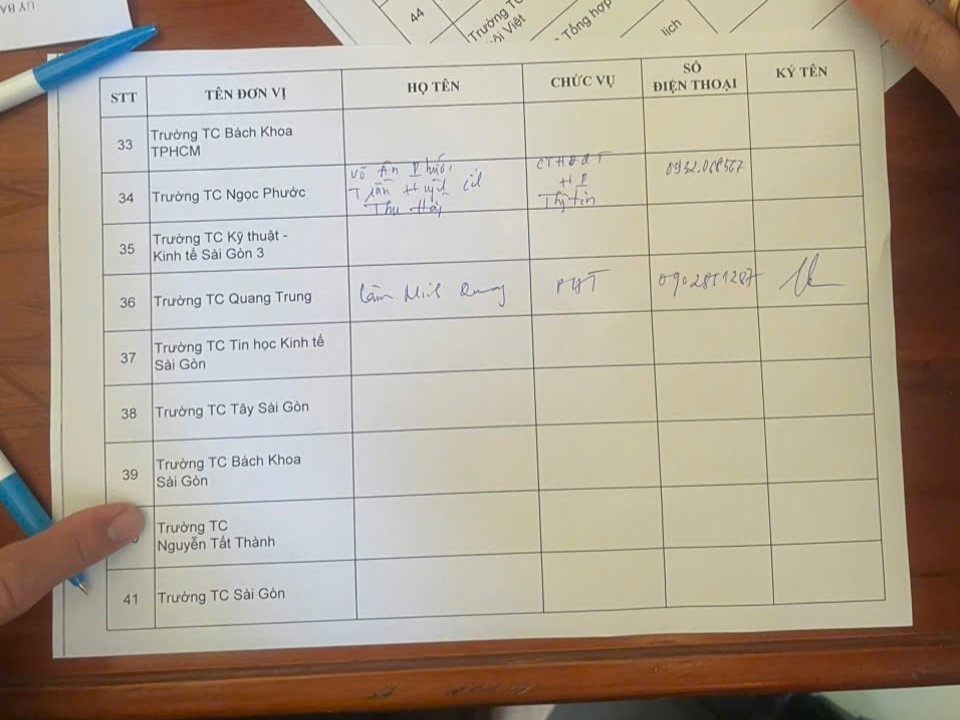 ỦY BA
44
Trường T
ôi Việt
- Tổng hợp
lịch
STT
TÊN ĐƠN VỊ
HỌ TÊN
CHỨC VỤ
SỐ
ĐIỆN THOẠI
KÝ TÊN
33
Trường TC Bách Khoa
TPHCM
34
Trường TC Ngọc Phước
Võ Ân
Thu
CTHĐQT
0932.068567
35
Trường TC Kỹ thuật -
Kinh tế Sài Gòn 3
36
Trường TC Quang Trung
Lâm Minh Quang
0902851287
37
Trường TC Tin học Kinh tế
Sài Gòn
38
Trường TC Tây Sài Gòn
39
Trường TC Bách Khoa
Sài Gòn
Trường TC
Nguyễn Tất Thành
41
Trường TC Sài Gòn